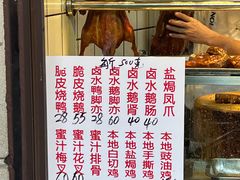 一斤 500克
脆皮烧鸭 28
脆皮烧鹅 55
卤水鸭脚亦 28
卤水鹅脚亦 60
卤水鹅肾
卤水鹅肠
盐焗凤爪 40
蜜汁梅叉
蜜汁花
蜜汁排骨
本地白切鸡
本地盐焗鸡
本地手撕鸡
本地豉油鸡